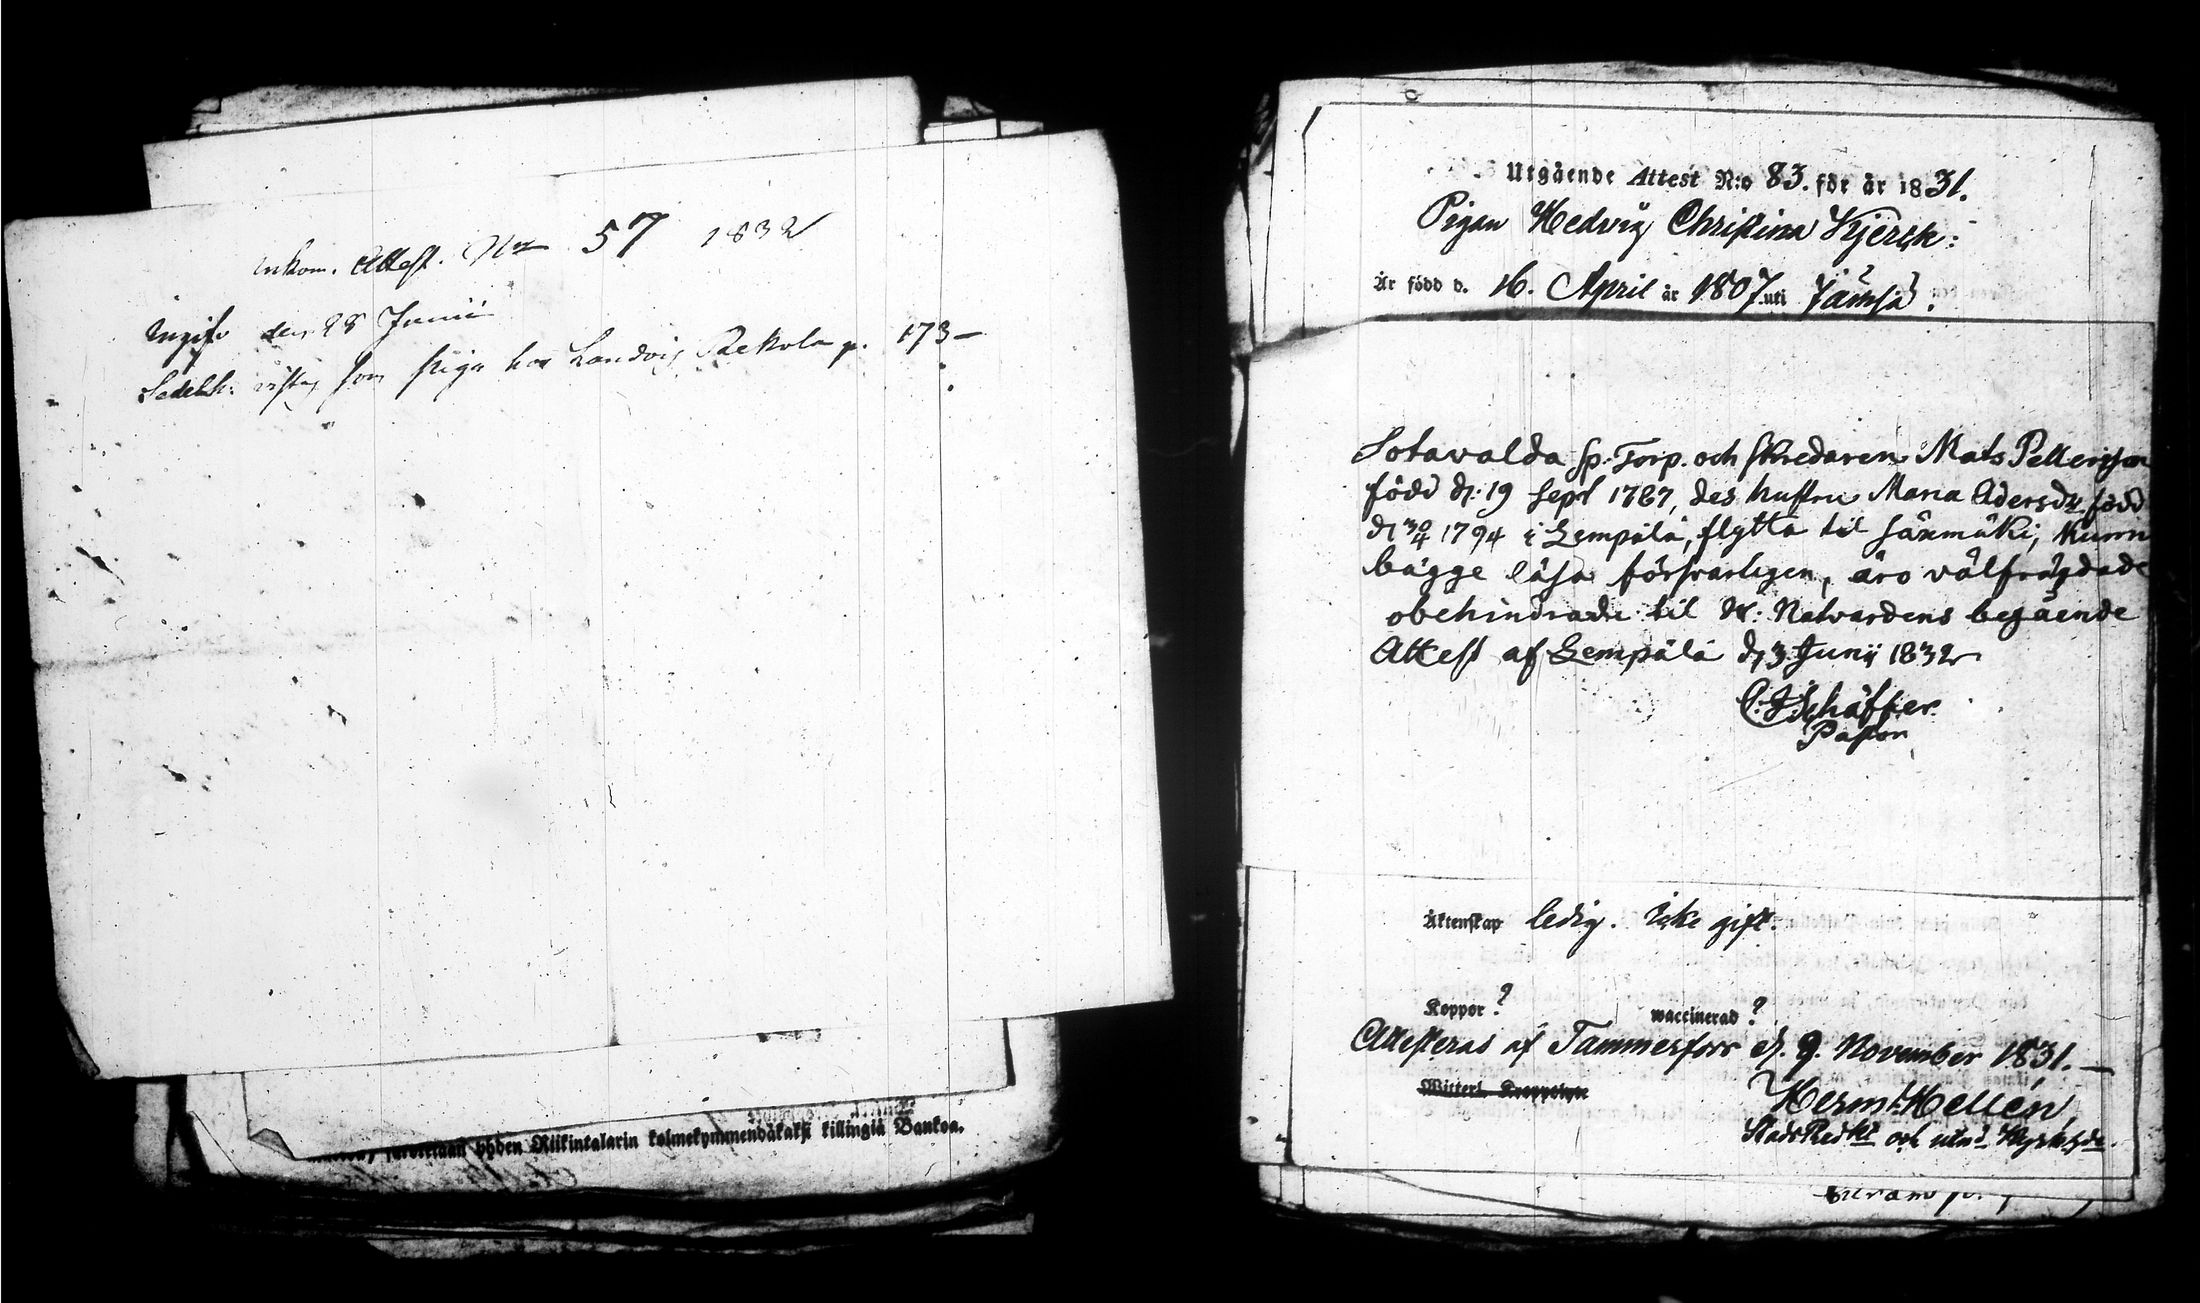 Inkom. Attest. No 57 1832
Ingifv. den 28 Junii
Sedelh. vistas som piga hos Landvis Rekola p. 173
yhden Riikintalarin kolmekymmendäkaksi killingiä Bankoa.
Utgående Attest N:o 83. för år 1831.
Pigan Hedvig Christina Kjersk:
Är född d. 16. April år 1807. uti Jämsä.
Sotavalda sp. Torp. och skredaren Mats Pettersson
född d. 19 Sept 1787, des hustru Maria Adersdr född
d 30/4 1794 i Lempälä, flytta til Säxmäki, kunn
bägge läsa försvarligen, äro välfrägdade
obehindrade til H. Natvardens begående
Attest af Lempälä d 3 Junii 1832
C. J. Schäffer.
Pastor
Äktenskap ledig. icke gift.
Koppor? waccinerad?
Attesteras af Tammerfors d. 9. November 1831.
Herm. Hellén